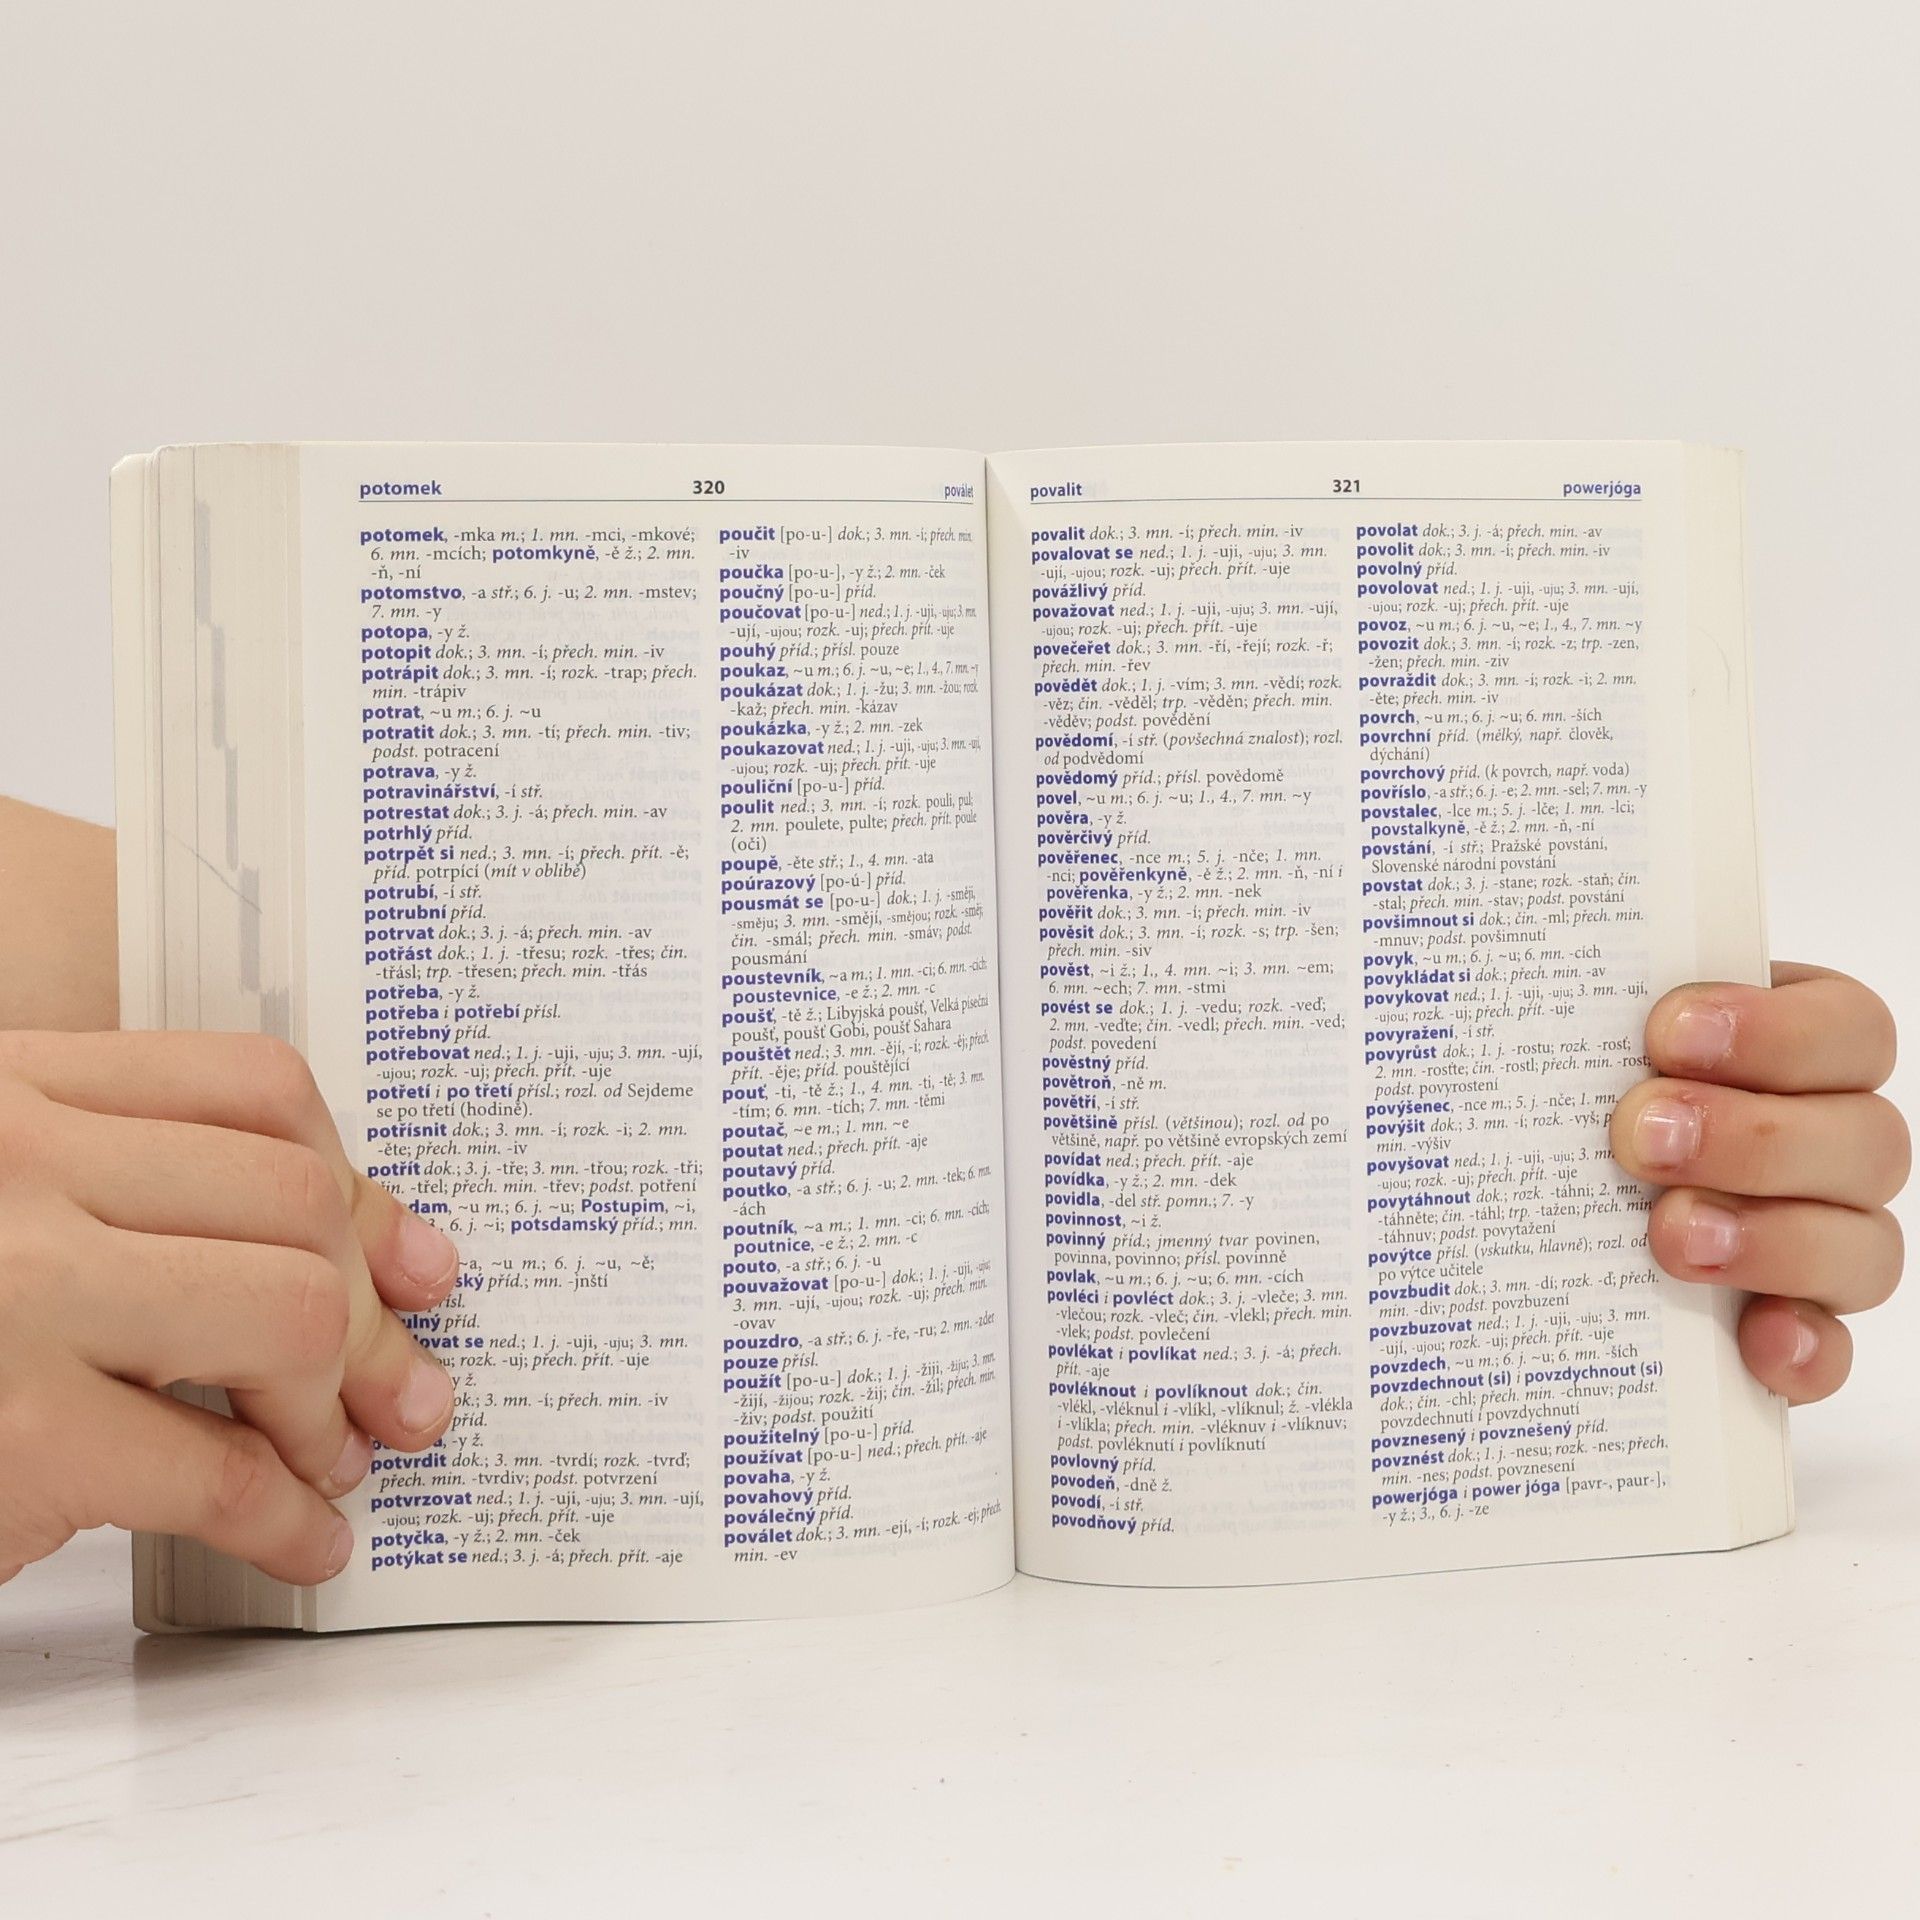 potomek 320 poválet
potomek, -mka m.; 1. mn. -mci, -mkové;
6. mn. -mcích; potomkyně, -ě ž.; 2. mn.
-ň, -ní
potomstvo, -a stř.; 6. j. -u; 2. mn. -mstev;
7. mn. -y
potopa, -y ž.
potopit dok.; 3. mn. -í; přech. min. -iv
potrápit dok.; 3. mn. -í; rozk. -trap; přech.
min. -trápiv
potrat, ~u m.; 6. j. ~u
potratit dok.; 3. mn. -tí; přech. min. -tiv;
podst. potracení
potrava, -y ž.
potravinářství, -í stř.
potrestat dok.; 3. j. -á; přech. min. -av
potrhlý příd.
potrpět si ned.; 3. mn. -í; přech. přít. -ě;
příd. potrpící (mít v oblibě)
potrubí, -í stř.
potrubní příd.
potrvat dok.; 3. j. -á; přech. min. -av
potřást dok.; 1. j. -třesu; rozk. -třes; čin.
-třásl; trp. -třesen; přech. min. -třás
potřeba, -y ž.
potřeba i potřebí přísl.
potřebný příd.
potřebovat ned.; 1. j. -uji, -uju; 3. mn. -ují,
-ujou; rozk. -uj; přech. přít. -uje
potřetí i po třetí přísl.; rozl. od Sejdeme
se po třetí (hodině).
potřísnit dok.; 3. mn. -í; rozk. -i; 2. mn.
-ěte; přech. min. -iv
potřít dok.; 3. j. -tře; 3. mn. -třou; rozk. -tři;
čin. -třel; přech. min. -třev; podst. potření
dam, ~u m.; 6. j. ~u; Postupim, ~i,
6. j. ~i; potsdamský příd.; mn.
~a, ~u m.; 6. j. ~u, ~ě;
ský příd.; mn. -jnští
přísl.
ulný příd.
lovat se ned.; 1. j. -uji, -uju; 3. mn.
rozk. -uj; přech. přít. -uje
ž.
3. mn. -í; přech. min. -iv
příd.
-y ž.
potvrdit dok.; 3. mn. -tvrdí; rozk. -tvrď;
přech. min. -tvrdiv; podst. potvrzení
potvrzovat ned.; 1. j. -uji, -uju; 3. mn. -ují,
-ujou; rozk. -uj; přech. přít. -uje
potyčka, -y ž.; 2. mn. -ček
potýkat se ned.; 3. j. -á; přech. přít. -aje
poučit [po-u-] dok.; 3. mn. -í; přech. min.
-iv
poučka [po-u-], -y ž.; 2. mn. -ček
poučný [po-u-] příd.
poučovat [po-u-] ned.; 1. j. -uji, -uju; 3. mn.
-ují, -ujou; rozk. -uj; přech. přít. -uje
pouhý příd.; přísl. pouze
poukaz, ~u m.; 6. j. ~u, ~e; 1., 4., 7. mn. ~y
poukázat dok.; 1. j. -žu; 3. mn. -žou; rozk.
-kaž; přech. min. -kázav
poukázka, -y ž.; 2. mn. -zek
poukazovat ned.; 1. j. -uji, -uju; 3. mn. -ují,
-ujou; rozk. -uj; přech. přít. -uje
pouliční [po-u-] příd.
poulit ned.; 3. mn. -í; rozk. pouli, pul;
2. mn. poulete, pulte; přech. přít. poule
(oči)
poupě, -ěte stř.; 1., 4. mn. -ata
poúrazový [po-ú-] příd.
pousmát se [po-u-] dok.; 1. j. -směji,
-směju; 3. mn. -smějí, -smějou; rozk. -směj;
čin. -smál; přech. min. -smáv; podst.
pousmání
poustevník, ~a m.; 1. mn. -ci; 6. mn. -cích;
poustevnice, -e ž.; 2. mn. -c
poušť, -tě ž.; Libyjská poušť, Velká písečná
poušť, poušť Gobi, poušť Sahara
pouštět ned.; 3. mn. -ějí, -í; rozk. -ěj; přech.
přít. -ěje; příd. pouštějící
pouť, -ti, -tě ž.; 1., 4. mn. -ti, -tě; 3. mn.
-tím; 6. mn. -tích; 7. mn. -těmi
poutač, ~e m.; 1. mn. ~e
poutat ned.; přech. přít. -aje
poutavý příd.
poutko, -a stř.; 6. j. -u; 2. mn. -tek; 6. mn.
-ách
poutník, ~a m.; 1. mn. -ci; 6. mn. -cích;
poutnice, -e ž.; 2. mn. -c
pouto, -a stř.; 6. j. -u
pouvažovat [po-u-] dok.; 1. j. -uji, -uju;
3. mn. -ují, -ujou; rozk. -uj; přech. min.
-ovav
pouzdro, -a stř.; 6. j. -ře, -ru; 2. mn. -zder
pouze přísl.
použít [po-u-] dok.; 1. j. -žiji, -žiju; 3. mn.
-žijí, -žijou; rozk. -žij; čin. -žil; přech. min.
-živ; podst. použití
použitelný [po-u-] příd.
používat [po-u-] ned.; přech. přít. -aje
povaha, -y ž.
povahový příd.
poválečný příd.
poválet dok.; 3. mn. -ejí, -í; rozk. -ej; přech.
min. -ev
povalit 321 powerjóga
povalit dok.; 3. mn. -í; přech. min. -iv
povalovat se ned.; 1. j. -uji, -uju; 3. mn.
-ují, -ujou; rozk. -uj; přech. přít. -uje
povážlivý příd.
považovat ned.; 1. j. -uji, -uju; 3. mn. -ují,
-ujou; rozk. -uj; přech. přít. -uje
povečeřet dok.; 3. mn. -ří, -řejí; rozk. -ř;
přech. min. -řev
povědět dok.; 1. j. -vím; 3. mn. -vědí; rozk.
-věz; čin. -věděl; trp. -věděn; přech. min.
-věděv; podst. povědění
povědomí, -í stř. (povšechná znalost); rozl.
od podvědomí
povědomý příd.; přísl. povědomě
povel, ~u m.; 6. j. ~u; 1., 4., 7. mn. ~y
pověra, -y ž.
pověrčivý příd.
pověřenec, -nce m.; 5. j. -nče; 1. mn.
-nci; pověřenkyně, -ě ž.; 2. mn. -ň, -ní i
pověřenka, -y ž.; 2. mn. -nek
pověřit dok.; 3. mn. -í; přech. min. -iv
pověsit dok.; 3. mn. -í; rozk. -s; trp. -šen;
přech. min. -siv
pověst, ~i ž.; 1., 4. mn. ~i; 3. mn. ~em;
6. mn. ~ech; 7. mn. -stmi
povést se dok.; 1. j. -vedu; rozk. -veď;
2. mn. -veďte; čin. -vedl; přech. min. -ved;
podst. povedení
pověstný příd.
povětroň, -ně m.
povětří, -í stř.
povětšině přísl. (většinou); rozl. od po
většině, např. po většině evropských zemí
povídat ned.; přech. přít. -aje
povídka, -y ž.; 2. mn. -dek
povidla, -del stř. pomn.; 7. -y
povinnost, ~i ž.
povinný příd.; jmenný tvar povinen,
povinna, povinno; přísl. povinně
povlak, ~u m.; 6. j. ~u; 6. mn. -cích
povléci i povléct dok.; 3. j. -vleče; 3. mn.
-vlečou; rozk. -vleč; čin. -vlekl; přech. min.
-vlek; podst. povlečení
povlékat i povlíkat ned.; 3. j. -á; přech.
přít. -aje
povléknout i povlíknout dok.; čin.
-vlékl, -vléknul i -vlíkl, -vlíknul; ž. -vlékla
i -vlíkla; přech. min. -vléknuv i -vlíknuv;
podst. povléknutí i povlíknutí
povlovný příd.
povodeň, -dně ž.
povodí, -í stř.
povodňový příd.
povolat dok.; 3. j. -á; přech. min. -av
povolit dok.; 3. mn. -í; přech. min. -iv
povolný příd.
povolovat ned.; 1. j. -uji, -uju; 3. mn. -ují,
-ujou; rozk. -uj; přech. přít. -uje
povoz, ~u m.; 6. j. ~u, ~e; 1., 4., 7. mn. ~y
povozit dok.; 3. mn. -í; rozk. -z; trp. -zen,
-žen; přech. min. -ziv
povraždit dok.; 3. mn. -í; rozk. -i; 2. mn.
-ěte; přech. min. -iv
povrch, ~u m.; 6. j. ~u; 6. mn. -ších
povrchní příd. (mělký, např. člověk,
dýchání)
povrchový příd. (k povrch, např. voda)
povříslo, -a stř.; 6. j. -e; 2. mn. -sel; 7. mn. -y
povstalec, -lce m.; 5. j. -lče; 1. mn. -lci;
povstalkyně, -ě ž.; 2. mn. -ň, -ní
povstání, -í stř.; Pražské povstání,
Slovenské národní povstání
povstat dok.; 3. j. -stane; rozk. -staň; čin.
-stal; přech. min. -stav; podst. povstání
povšimnout si dok.; čin. -ml; přech. min.
-mnuv; podst. povšimnutí
povyk, ~u m.; 6. j. ~u; 6. mn. -cích
povykládat si dok.; přech. min. -av
povykovat ned.; 1. j. -uji, -uju; 3. mn. -ují,
-ujou; rozk. -uj; přech. přít. -uje
povyražení, -í stř.
povyrůst dok.; 1. j. -rostu; rozk. -rosť;
2. mn. -rosťte; čin. -rostl; přech. min. -rost;
podst. povyrostení
povýšenec, -nce m.; 5. j. -nče; 1. mn.
povýšit dok.; 3. mn. -í; rozk. -vyš;
min. -výšiv
povyšovat ned.; 1. j. -uji, -uju; 3.
-ujou; rozk. -uj; přech. přít. -uje
povytáhnout dok.; rozk. -táhni; 2. mn.
-táhněte; čin. -táhl; trp. -tažen; přech. min.
-táhnuv; podst. povytažení
povýtce přísl. (vskutku, hlavně); rozl. od
po výtce učitele
povzbudit dok.; 3. mn. -dí; rozk. -ď; přech.
min. -div; podst. povzbuzení
povzbuzovat ned.; 1. j. -uji, -uju; 3. mn.
-ují, -ujou; rozk. -uj; přech. přít. -uje
povzdech, ~u m.; 6. j. ~u; 6. mn. -ších
povzdechnout (si) i povzdychnout (si)
dok.; čin. -chl; přech. min. -chnuv; podst.
povzdechnutí i povzdychnutí
povznesený i povznešený příd.
povznést dok.; 1. j. -nesu; rozk. -nes; přech.
min. -nes; podst. povznesení
powerjóga i power jóga [pavr-, paur-],
-y ž.; 3., 6. j. -ze